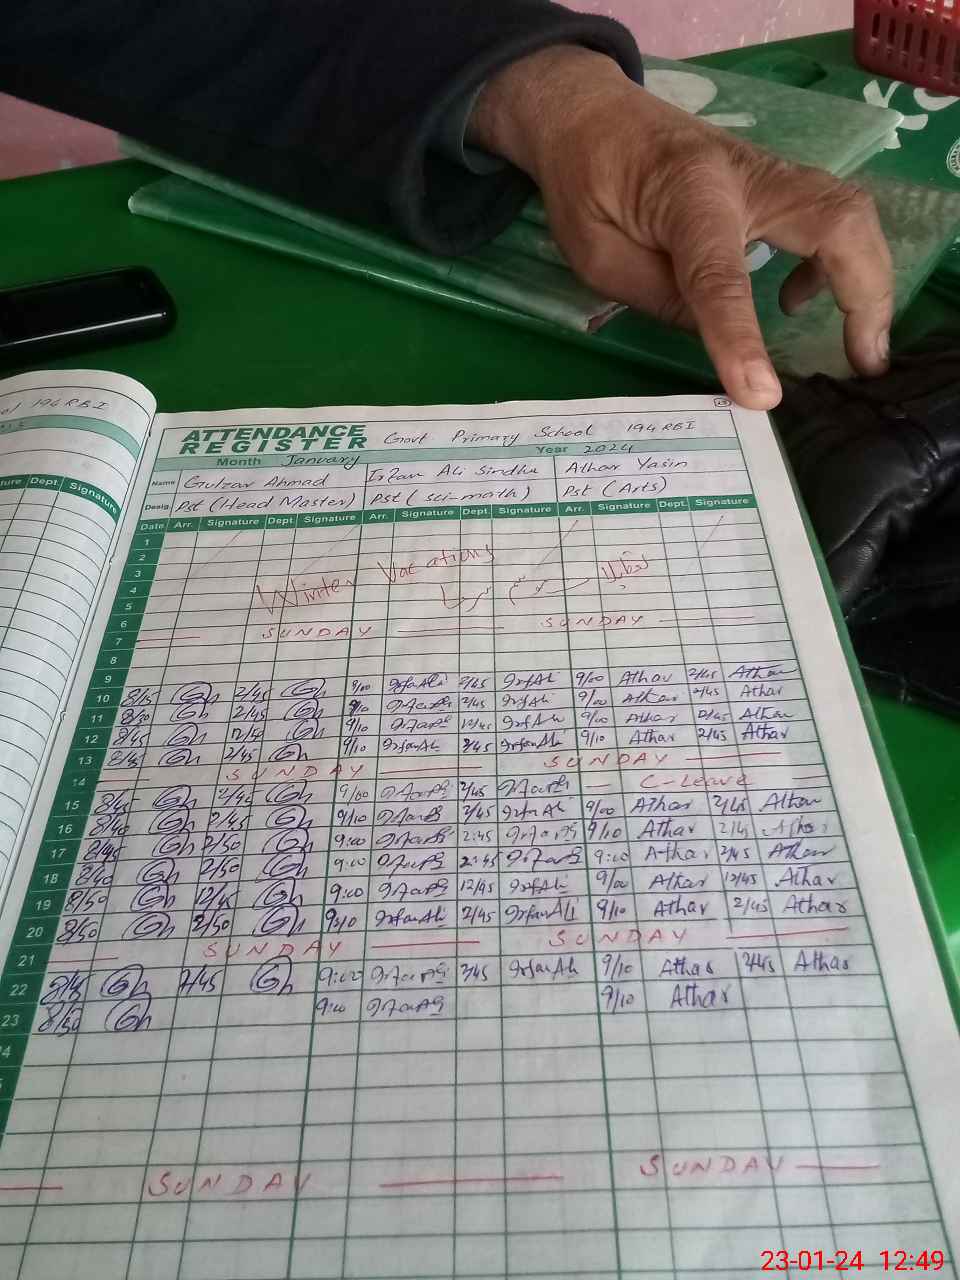 194 RBI
ature Dept. Signature
ATTENDANCE REGISTER Govt Primary School 194 RBI
Month January Year 2024
Name Gulzar Ahmad Irfan Ali Sindhu Athar Yasin
Desig. Pst (Head Master) Pst (sci-math) Pst (Arts)
Date Arr. Signature Dept. Signature Arr. Signature Dept. Signature Arr. Signature Dept. Signature
1
2
3
4
Winter Vacations
5
6
7 SUNDAY SUNDAY
8
9
10 8/15 Gh 2/45 Gh 9/00 IrfanAli 2/45 IrfAli 9/00 Athar 2/45 Athar
11 8/50 Gh 2/45 Gh 9/10 2/45 IrfAli 9/00 Athar 2/45 Athar
12 8/45 Gh Gh 9/10 12/45 9/00 Athar 12/45 Athar
13 8/45 Gh 2/45 Gh 9/10 IrfanAli 2/45 IrfanAli 9/10 Athar 2/45 Athar
14 SUNDAY SUNDAY
15 8/45 Gh 2/45 Gh 9/00 2/45 C-Leave
16 8/40 Gh 2/45 Gh 9/10 2/45 IrfAli 9/00 Athar 2/45 Athar
17 8/45 Gh 2/50 Gh 9:00 2:45 9/10 Athar 2/45 Athar
18 8/40 Gh 2/50 Gh 9:00 2:45 9:00 Athar 2/45 Athar
19 8/50 Gh 12/45 Gh 9:00 12/45 IrfAli 9/00 Athar 12/45 Athar
20 8/50 Gh 2/50 Gh 9/10 IrfanAli 2/45 IrfanAli 9/10 Athar 2/45 Athar
21 SUNDAY SUNDAY
22 8/45 Gh 2/45 Gh 9:00 2/45 IrfanAli 9/10 Athar 2/45 Athar
23 8/50 Gh 9:00 9/10 Athar
24
SUNDAY SUNDAY
23-01-24 12:49